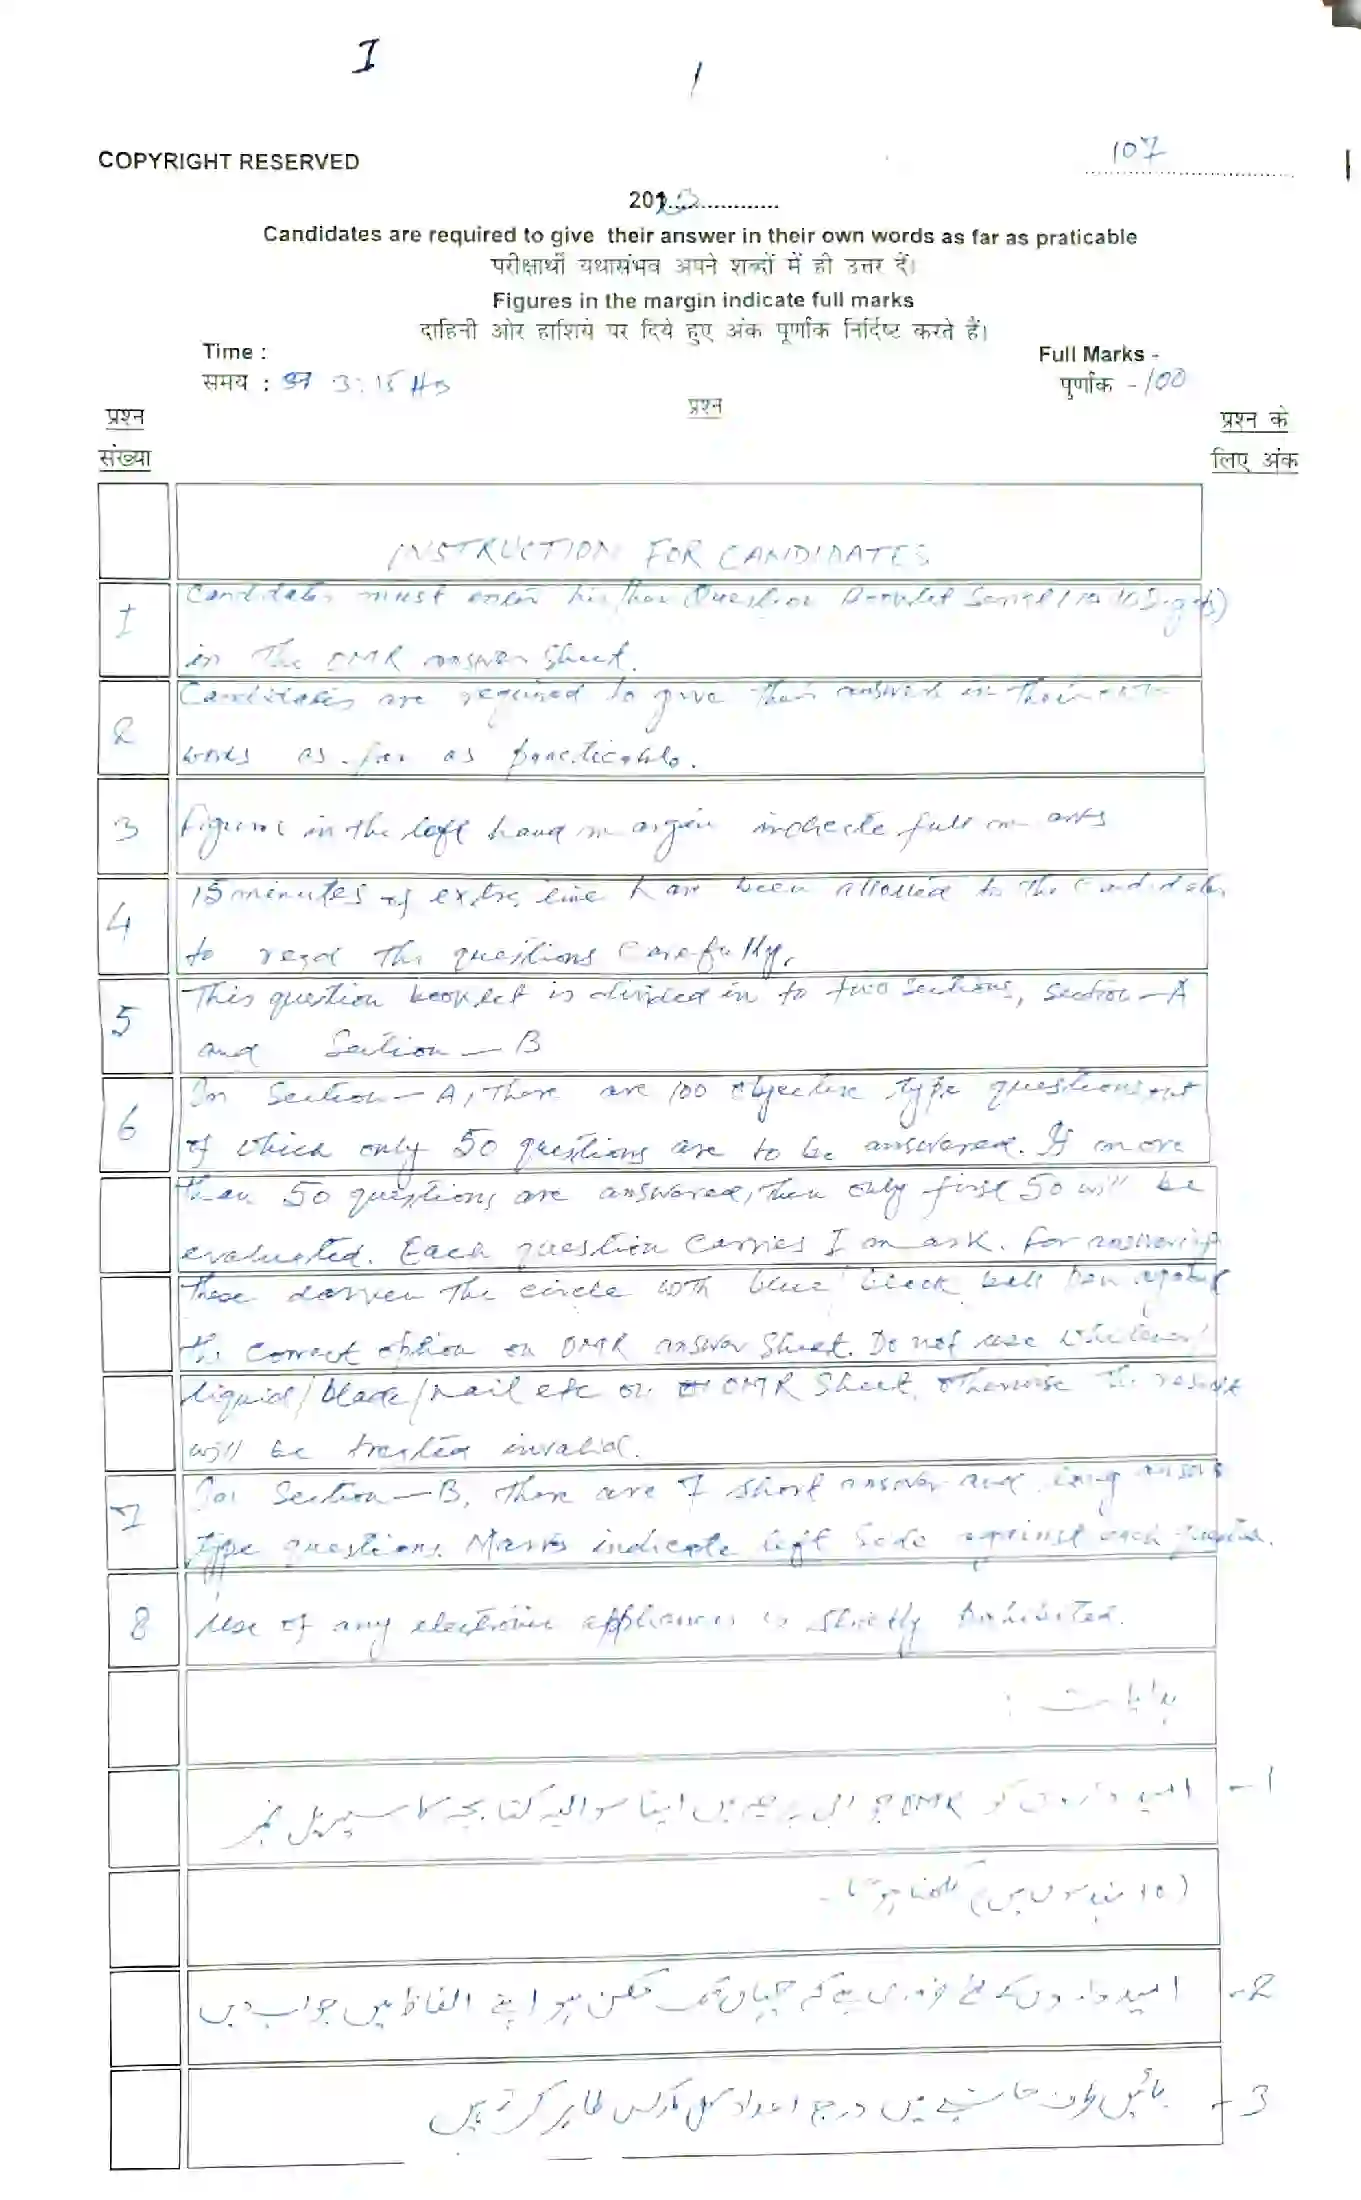 I
1
COPYRIGHT RESERVED
107
2023
Candidates are required to give their answer in their own words as far as praticable
परीक्षार्थी यथासंभव अपने शब्दों में ही उत्तर दें।
Figures in the margin indicate full marks
दाहिनी ओर हाशिये पर दिये हुए अंक पूर्णांक निर्दिष्ट करते हैं।
Time :
Full Marks -
समय : 3:15 Hs
पूर्णांक -100
प्रश्न
प्रश्न
प्रश्न के
संख्या
लिए अंक
INSTRUCTION FOR CANDIDATES
1 Candidates must enter his/her Question Booklet Serial (10 Digits)
in the OMR answer Sheet.
2 Candidates are required to give their answers in their own
words as far as practicable.
3 Figures in the left hand margin indicate full marks
4 15 minutes of extra time have been allotted to the candidates
to read the questions carefully.
5 This question booklet is divided in to two sections, section—A
and Section—B
6 In Section—A, there are 100 objective type questions, out
of which only 50 questions are to be answered. If more
than 50 questions are answered, then only first 50 will be
evaluated. Each question carries 1 mark. For answering
these darken the circle with blue/black ball pen against
the correct option on OMR answer Sheet. Do not use whitener/
liquid/blade/nail etc on OMR Sheet, otherwise the result
will be treated invalid.
7 In Section—B, there are 7 short answer and long answer
type questions. Marks indicate left side against each question.
8 Use of any electronic appliances is strictly prohibited.
ہدایات :
1- امیدواروں کو OMR جوابی پرچے میں اپنا سوالیہ کتابچہ کا سیریل نمبر
(10 ہندسوں میں) لکھنا ہوگا۔
2- امیدواروں کے لئے ضروری ہے کہ جہاں تک ممکن ہو اپنے الفاظ میں جواب دیں
3- بائیں طرف حاشیے میں درج اعداد کل مارکس ظاہر کرتے ہیں